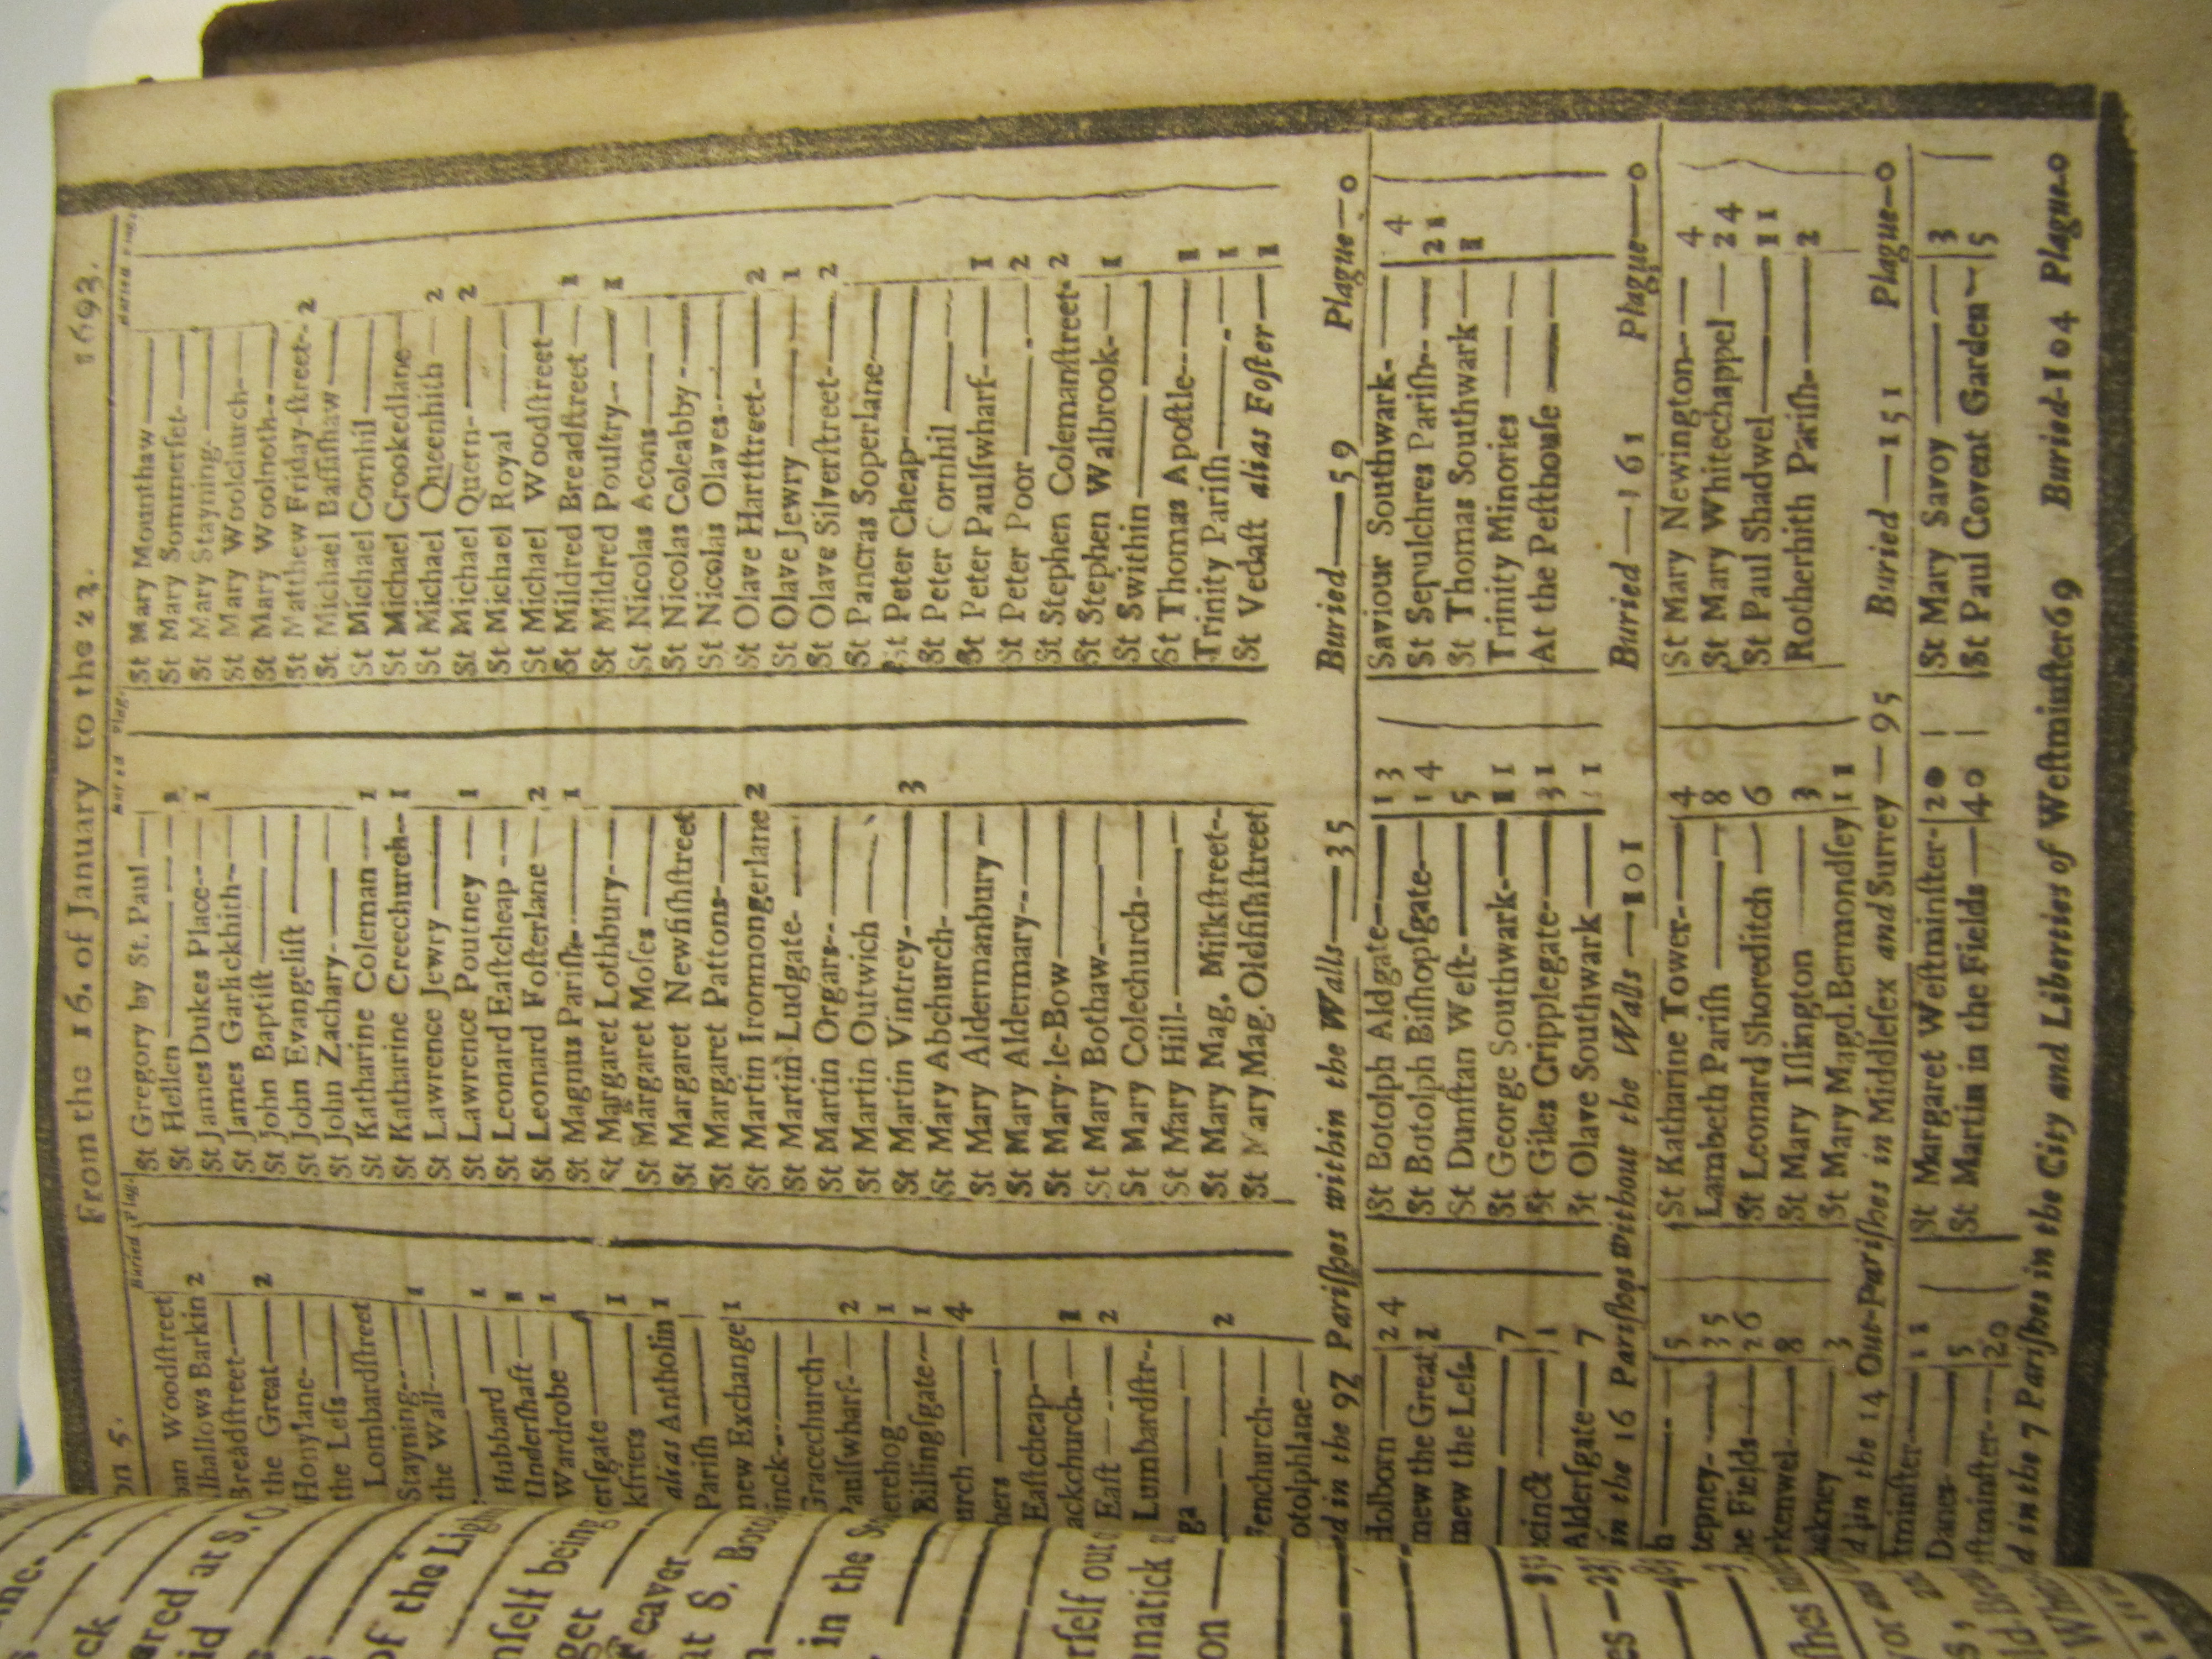 on 5. From the 16. of January to the 23. 1693.
Buried Plag.
Woodstreet
lhallows Barkin 2
Breadstreet
the Great 2
Honylane
the Less
Lombardstreet
Stayning 1
the Wall
1
Hubbard 1
Undershaft 1
Wardrobe
ersgate 1
kfriers
alias Antholin 1
Parish
new Exchange 1
inck
Gracechurch
Paulswharf 2
erehog 1
Billingsgate 1
urch 4
hers
Eastcheap
ackchurch 1
East 2
Lumbardstr
ga
2
Fenchurch
otolphlane
Buried Plag.
St Gregory by St. Paul
St Hellen 1
St James Dukes Place 1
St James Garlickhith
St John Baptist
St John Evangelist
St John Zachary
St Katharine Coleman 1
St Katharine Creechurch 1
St Lawrence Jewry
St Lawrence Poutney 1
St Leonard Eastcheap
St Leonard Fosterlane 2
St Magnus Parish 1
St Margaret Lothbury
St Margaret Moses
St Margaret Newfishstreet
St Margaret Pattons
St Martin Ironmongerlane 2
St Martin Ludgate
St Martin Orgars
St Martin Outwich
St Martin Vintrey 3
St Mary Abchurch
St Mary Aldermanbury
St Mary Aldermary
St Mary-le-Bow
St Mary Bothaw
St Mary Colechurch
St Mary Hill
St Mary Mag. Milkstreet
St Mary Mag. Oldfishstreet
St Mary Mounthaw
St Mary Sommerset
St Mary Stayning
St Mary Woolchurch
St Mary Woolnoth
St Matthew Friday-street 2
St Michael Bassishaw
St Michael Cornhil
St Michael Crookedlane
St Michael Queenhith 2
St Michael Quern 2
St Michael Royal
St Michael Woodstreet
St Mildred Breadstreet 1
St Mildred Poultry 1
St Nicolas Acons
St Nicolas Coleabby
St Nicolas Olaves
St Olave Hartstreet 2
St Olave Jewry 1
St Olave Silverstreet 2
St Pancras Soperlane
St Peter Cheap
St Peter Cornhil
St Peter Paulswharf 1
St Peter Poor 2
St Stephen Colemanstreet 2
St Stephen Walbrook 1
St Swithin
St Thomas Apostle 1
Trinity Parish 1
St Vedast alias Foster 1
d in the 97 Parishes within the Walls—35 Buried—59 Plague—0
Holborn 24
mew the Great 2
mew the Less
7
1
Aldersgate 7
St Botolph Aldgate 13
St Botolph Bishopsgate 14
St Dunstan West 5
St George Southwark 11
St Giles Cripplegate 31
St Olave Southwark 11
Saviour Southwark 4
St Sepulchres Parish 21
St Thomas Southwark 1
Trinity Minories
At the Pesthouse
in the 16 Parishes without the Walls—101 Buried—161 Plague—0
5
tepney 35
he Fields 26
rkenwel 8
akney 3
St Katharine Tower 4
Lambeth Parish 8
St Leonard Shoreditch 6
St Mary Islington 3
St Mary Magd. Bermondsey 11
St Mary Newington 4
St Mary Whitechappel 24
St Paul Shadwel 11
Rotherhith Parish 2
d in the 14 Out-Parishes in Middlesex and Surrey—95 Buried—151 Plague—0
tminster 11
Danes 5
estminster 20
St Margaret Westminster 20
St Martin in the Fields 40
St Mary Savoy 3
St Paul Covent Garden 5
d in the 7 Parishes in the City and Liberties of Westminster 69 Buried—104 Plague.0
ck
ared at S.
of the Ligh
mself being
get
Feaver
at S. Botol
in the S
erself out
unatick
on